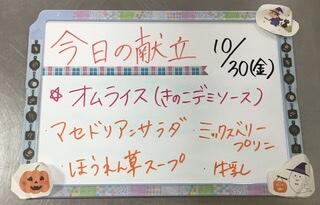 今日の献立
10/30(金)
☆オムライス(きのこデミソース)
・マセドリアンサラダ
・ミックスベリープリン
・ほうれん草スープ
・牛乳